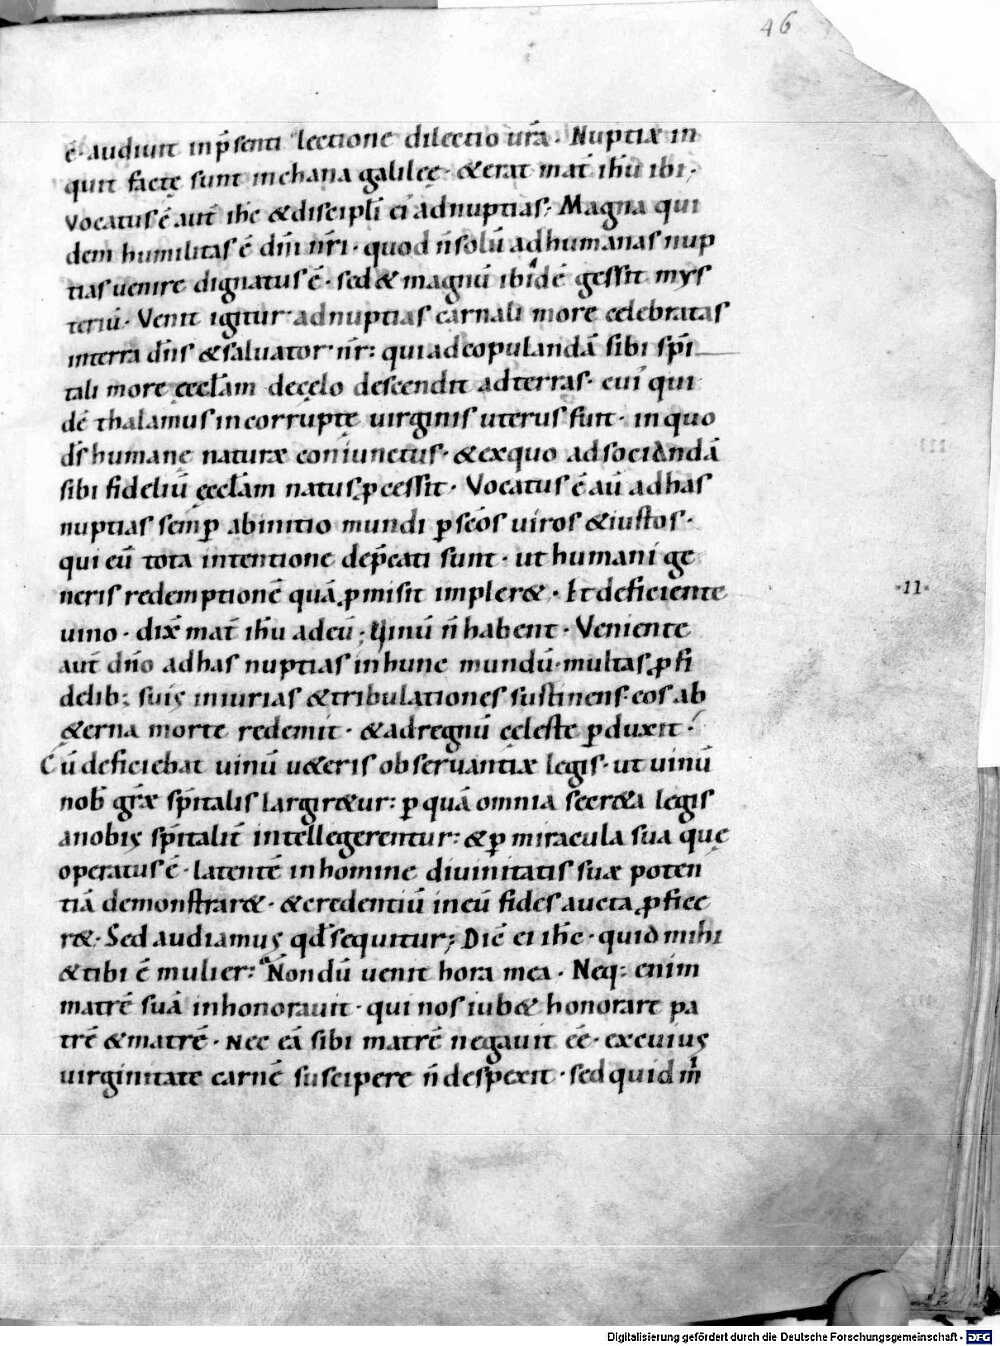 46
ē· audiuit inp̄senti lectione dilectio ur̄a· Nuptiæ in
quit factę sunt inchana galileę· &erat mat̄ ih̄u ibi;
Vocatus ē aut̄ ih̄c &discipl̄i ei adnuptias; Magna qui
dem humilitas ē dn̄i nr̄i· quod n̄ solū adhumanas nup
tias uenire dignatus ē· sed & magnū ibidē gessit mys
teriū· Venit igitur adnuptias carnali more celebratas
interra dn̄s &saluator nr̄: qui adcopulandā sibi sp̄i
tali more ęccl̄am decęlo descendit adterras· cui qui
dē thalamus incorruptę uirginis uterus fuit· in quo
ds̄ humanę naturæ coniunctus· &exquo adsociandā
sibi fideliū ęccl̄am natus ꝓcessit· Vocatus ē aū adhas
nuptias semꝑ abinitio mundi ꝑ sc̄os uiros &iustos·
qui eū tota intentione dep̄cati sunt· ut humani ge
neris redemptionē quā ꝓmisit impler&· Et deficiente
·11·
uino· dix̄ mat̄ ih̄u adeū; Uinū n̄ habent· Veniente
aut̄ dn̄o adhas nuptias inhunc mundū· multas ꝓ fi
delib; suis iniurias &tribulationes sustinens· eos ab
&erna morte redemit· &adregnū cęleste ꝑduxit·
Cū deficiebat uinū u&eris obseruantiæ legis· ut uinū
nob̄ gr̄æ sp̄italis largir&ur: ꝑ quā omnia secr&a legis
anobis sp̄italit̄ intellegerentur: &ꝑ miracula sua quę
operatus ē· latentē inhomine diuinitatis suæ poten
tiā demonstrar&· &credentiū ineū fides aucta ꝓfice
r&· Sed audiamus qd̄ sequitur; Dic̄ ei ih̄c· quid mihi
&tibi ē mulier: Nondū uenit hora mea· Neq; enim
matrē suā inhonorauit· qui nos iub& honorare pa
trē &matrē· Nec eā sibi matrē negauit eē· excuius
uirginitate carnē suscipere n̄ desp̄exit· sed quid m̄
Digitalisierung gefördert durch die Deutsche Forschungsgemeinschaft - DFG